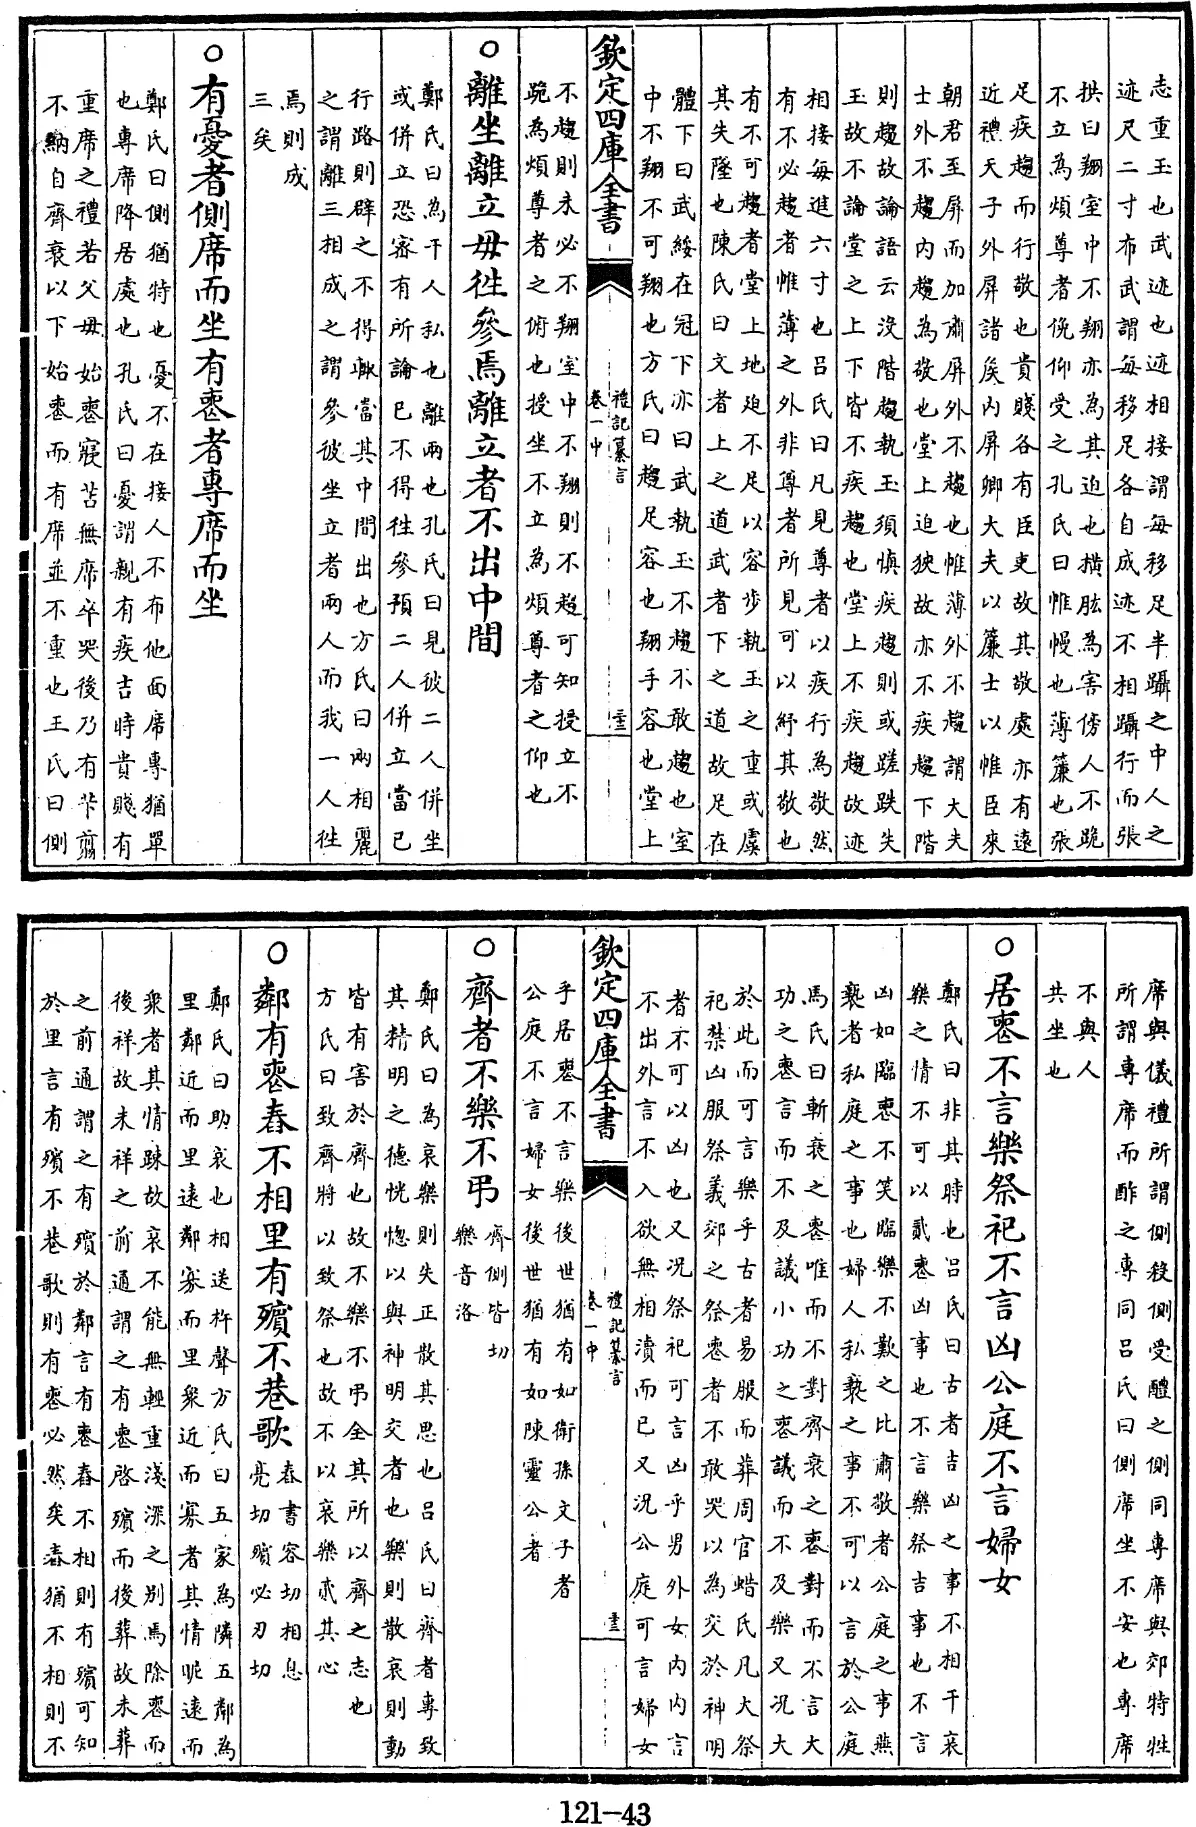 志重玉也武迹也迹相接謂每移足半躡之中人之
迹尺二寸布武謂每移足各自成迹不相躡行而張
拱曰翔室中不翔亦為其迫也橫肱為害傍人不跪
不立為煩尊者俛仰受之孔氏曰帷幔也薄簾也張
足疾趨而行敬也貴賤各有臣吏故其敬處亦有遠
近禮天子外屏諸侯内屏卿大夫以簾士以帷臣來
朝君至屏而加肅屏外不趨也帷薄外不趨謂大夫
士外不趨内趨為敬也堂上迫狹故亦不疾趨下階
則趨故論語云沒階趨執玉須慎疾趨則或蹉跌失
玉故不論堂之上下皆不疾趨也堂上不疾趨故迹
相接每進六寸也呂氏曰凡見尊者以疾行為敬然
有不必趨者惟薄之外非尊者所見可以紓其敬也
有不可趨者堂上地廹不足以容步執玉之重或虞
其失墜也陳氏曰文者上之道武者下之道故足在
體下曰武綏在冠下亦曰武執玉不趨不敢趨也室
中不翔不可翔也方氏曰趨足容也翔手容也堂上
欽定四庫全書
禮記纂言
卷一中
不趨則未必不翔室中不翔則不趨可知授立不
跪為煩尊者之俯也授坐不立為煩尊者之仰也
○離坐離立毋徃參焉離立者不出中間
鄭氏曰為干人私也離兩也孔氏曰見彼二人併坐
或併立恐宻有所論已不得徃參預二人併立當已
行路則辟之不得輙當其中間出也方氏曰兩相麗
之謂離三相成之謂參彼坐立者兩人而我一人徃
焉則成
三矣
○有憂者側席而坐有䘮者專席而坐
鄭氏曰側猶特也憂不在接人不布他面席專猶單
也專席降居處也孔氏曰憂謂親有疾吉時貴賤有
重席之禮若父母始䘮寢苫無席卒哭後乃有芐翦
不納自齊衰以下始䘮而有席並不重也王氏曰側
席與儀禮所謂側殺側受醴之側同專席與郊特牲
所謂專席而酢之專同呂氏曰側席坐不安也專席
不與人
共坐也
○居䘮不言樂祭祀不言凶公庭不言婦女
鄭氏曰非其時也呂氏曰古者吉凶之事不相干哀
樂之情不可以貳䘮凶事也不言樂祭吉事也不言
凶如臨䘮不笑臨樂不歎之比肅敬者公庭之事燕
褻者私庭之事也婦人私褻之事不可以言於公庭
馬氏曰斬衰之䘮唯而不對齊衰之䘮對而不言大
功之䘮言而不及議小功之䘮議而不及樂又况大
於此而可言樂乎古者易服而葬周官蜡氏凡大祭
祀禁凶服祭義郊之祭䘮者不敢哭以為交於神明
者不可以凶也又况祭祀可言凶乎男外女内内言
不出外言不入欲無相瀆而已又况公庭可言婦女
欽定四庫全書
禮記纂言
卷一中
乎居䘮不言樂後世猶有如衛孫文子者
公庭不言婦女後世猶有如陳靈公者
○齊者不樂不弔
齊側皆切
樂音洛
鄭氏曰為哀樂則失正散其思也呂氏曰齊者專致
其精明之德恍惚以與神明交者也樂則散哀則動
皆有害於齊也故不樂不弔全其所以齊之志也
方氏曰致齊將以致祭也故不以哀樂貳其心
○鄰有䘮舂不相里有殯不巷歌
舂書容切相息
亮切殯必刃切
鄭氏曰助哀也相送杵聲方氏曰五家為隣五鄰為
里鄰近而里遠鄰寡而里衆近而寡者其情昵遠而
衆者其情踈故哀不能無輕重淺深之别焉除䘮而
後祥故未祥之前通謂之有䘮啓殯而後葬故未葬
之前通謂之有殯於鄰言有䘮舂不相則有殯可知
於里言有殯不巷歌則有䘮必然矣舂猶不相則不
121-43